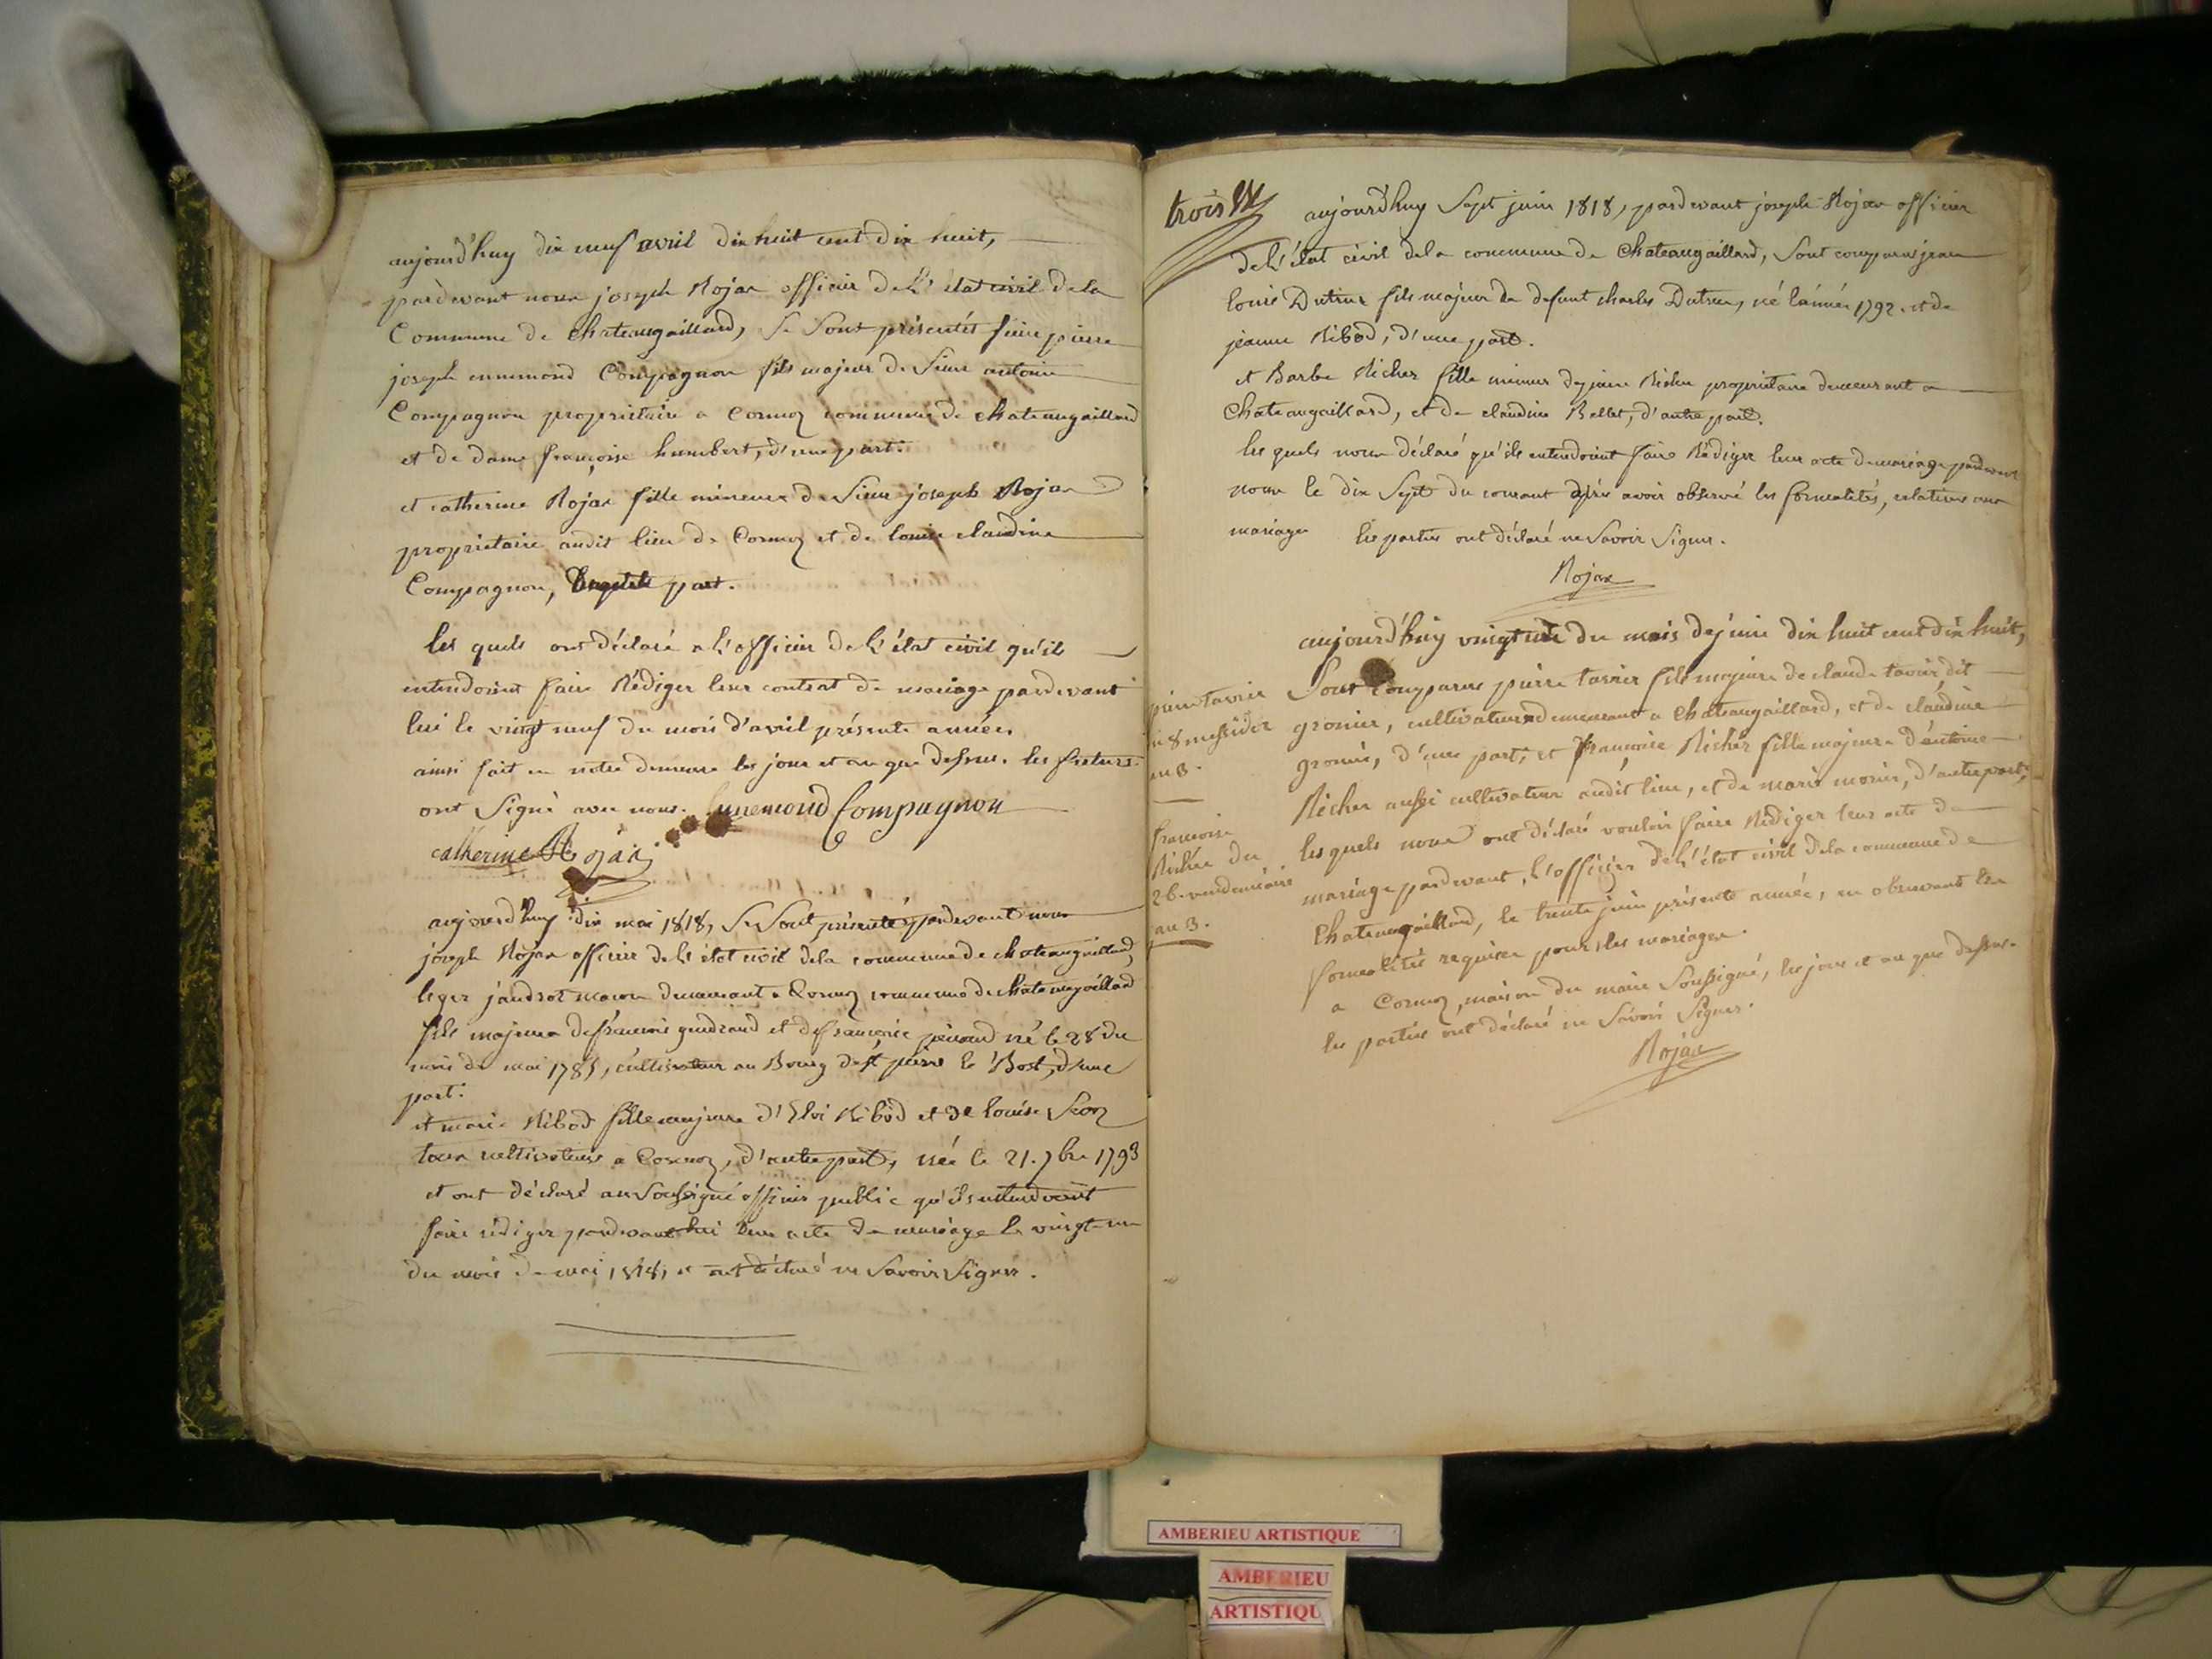 aujourd'huy dix neuf avril dix huit cent dix huit,
pardevant nous joseph Rojax officier de l'état civil de la
Commune de Chateaugaillard, Se Sont présentés pierre
joseph ennemond Compagnon fils majeur de Sieur antoine
Compagnon propriétaire a Cormoz commune de chateaugaillard
et de dame françoise humbert, d'une part.
et catherine Rojax fille mineure de Sieur joseph Rojax
propriétaire audit lieu de Cormoz et de louise claudine
Compagnon, part.
les quels ont déclaré a l'officier de l'état civil qu'ils
entendoient faire Rédiger leur contrat de mariage pardevant
lui le vingt neuf du mois d'avril présente année.
ainsi fait en notre demeure les jour et an que dessus. les futurs
ont Signé avec nous. Ennemond Compagnon
catherine Rojax
aujourd'huy dix mai 1818, Se Sont présentés pardevant nous
joseph Rojax officier de l'état civil de la commune de chateaugaillard,
leger jaudrot macon demeurant a Cormoz commune de chateaugaillard
fils majeur de françois et de françoise né le 28 du
mois de mai 1785, cultivateur au Bourg de St pierre le Bost, d'une
part.
et marie Ribod fille majeure d'Eloi Ribod et de louise
tous cultivateurs a Cormoz, d'autre part, née le 21. 7bre 1793
et ont déclaré au Soussigné officier public qu'ils entendoient
faire rédiger pardevant lui leur acte de mariage le vingt un
du mois de mai 1818, et ont déclaré ne Savoir Signer.
trois
aujourd'huy Sept juin 1818, pardevant joseph Rojax officier
de l'état civil de la commune de Chateaugaillard, Sont comparus jean
louis Dutreux fils majeur de defunt charles Dutreux, né l'année 1792. et de
jeanne Ribod, d'une part.
et Barbe Richer fille mineure de Richer propriétaire demeurant a
Chateaugaillard, et de claudine Bellet, d'autre part.
les quels nous déclaré qu'ils entendoient faire Rédiger leur acte de mariage pardevant
nous le dix Sept du courant après avoir observé les formalités, relatives aux
mariages les parties ont déclaré ne Savoir Signer.
Rojax
aujourd'huy vingt du mois de juin dix huit cent dix huit,
Sont Comparus pierre tavier fils majeur de claude tavier dit
gronier, cultivateur demeurant a Chateaugaillard, et de claudine
gronier, d'une part, et françoise Richer fille majeure d'antoine
Richer aussi cultivateur audit lieu, et de marie monier, d'autre part,
les quels nous ont déclaré vouloir faire Rédiger leur acte de
mariage pardevant, l'officier de l'état civil de la commune de
Chateaugaillard, le trente juin présente année, en observant les
formalités requises pour les mariages.
a Cormoz, maison du maire Soussigné, les jour et an que dessus.
les parties ont déclaré ne Savoir Signer.
Rojax
pierre tavier
né 8 messidor
an 8.
françoise
Richer du
26. vendemiaire
an 3.
AMBERIEU ARTISTIQUE
AMBERIEU
ARTISTIQU